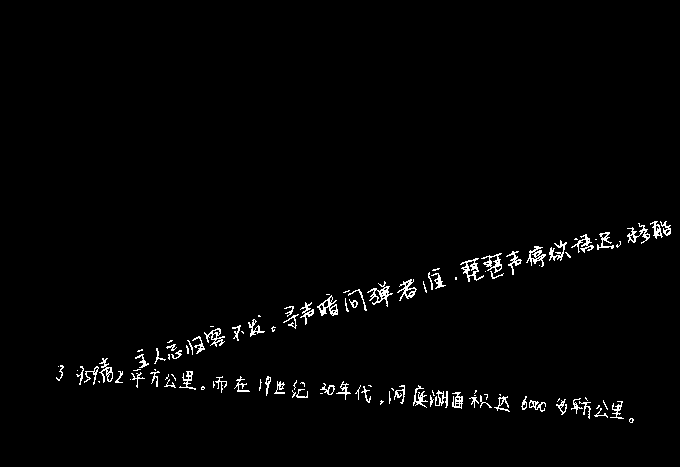 主人忘归客不发。寻声暗问弹者谁.琵琶声停欲语迟。移船
3 平方公里。而在19世纪30年代,洞庭湖面积达6000多平方公里。